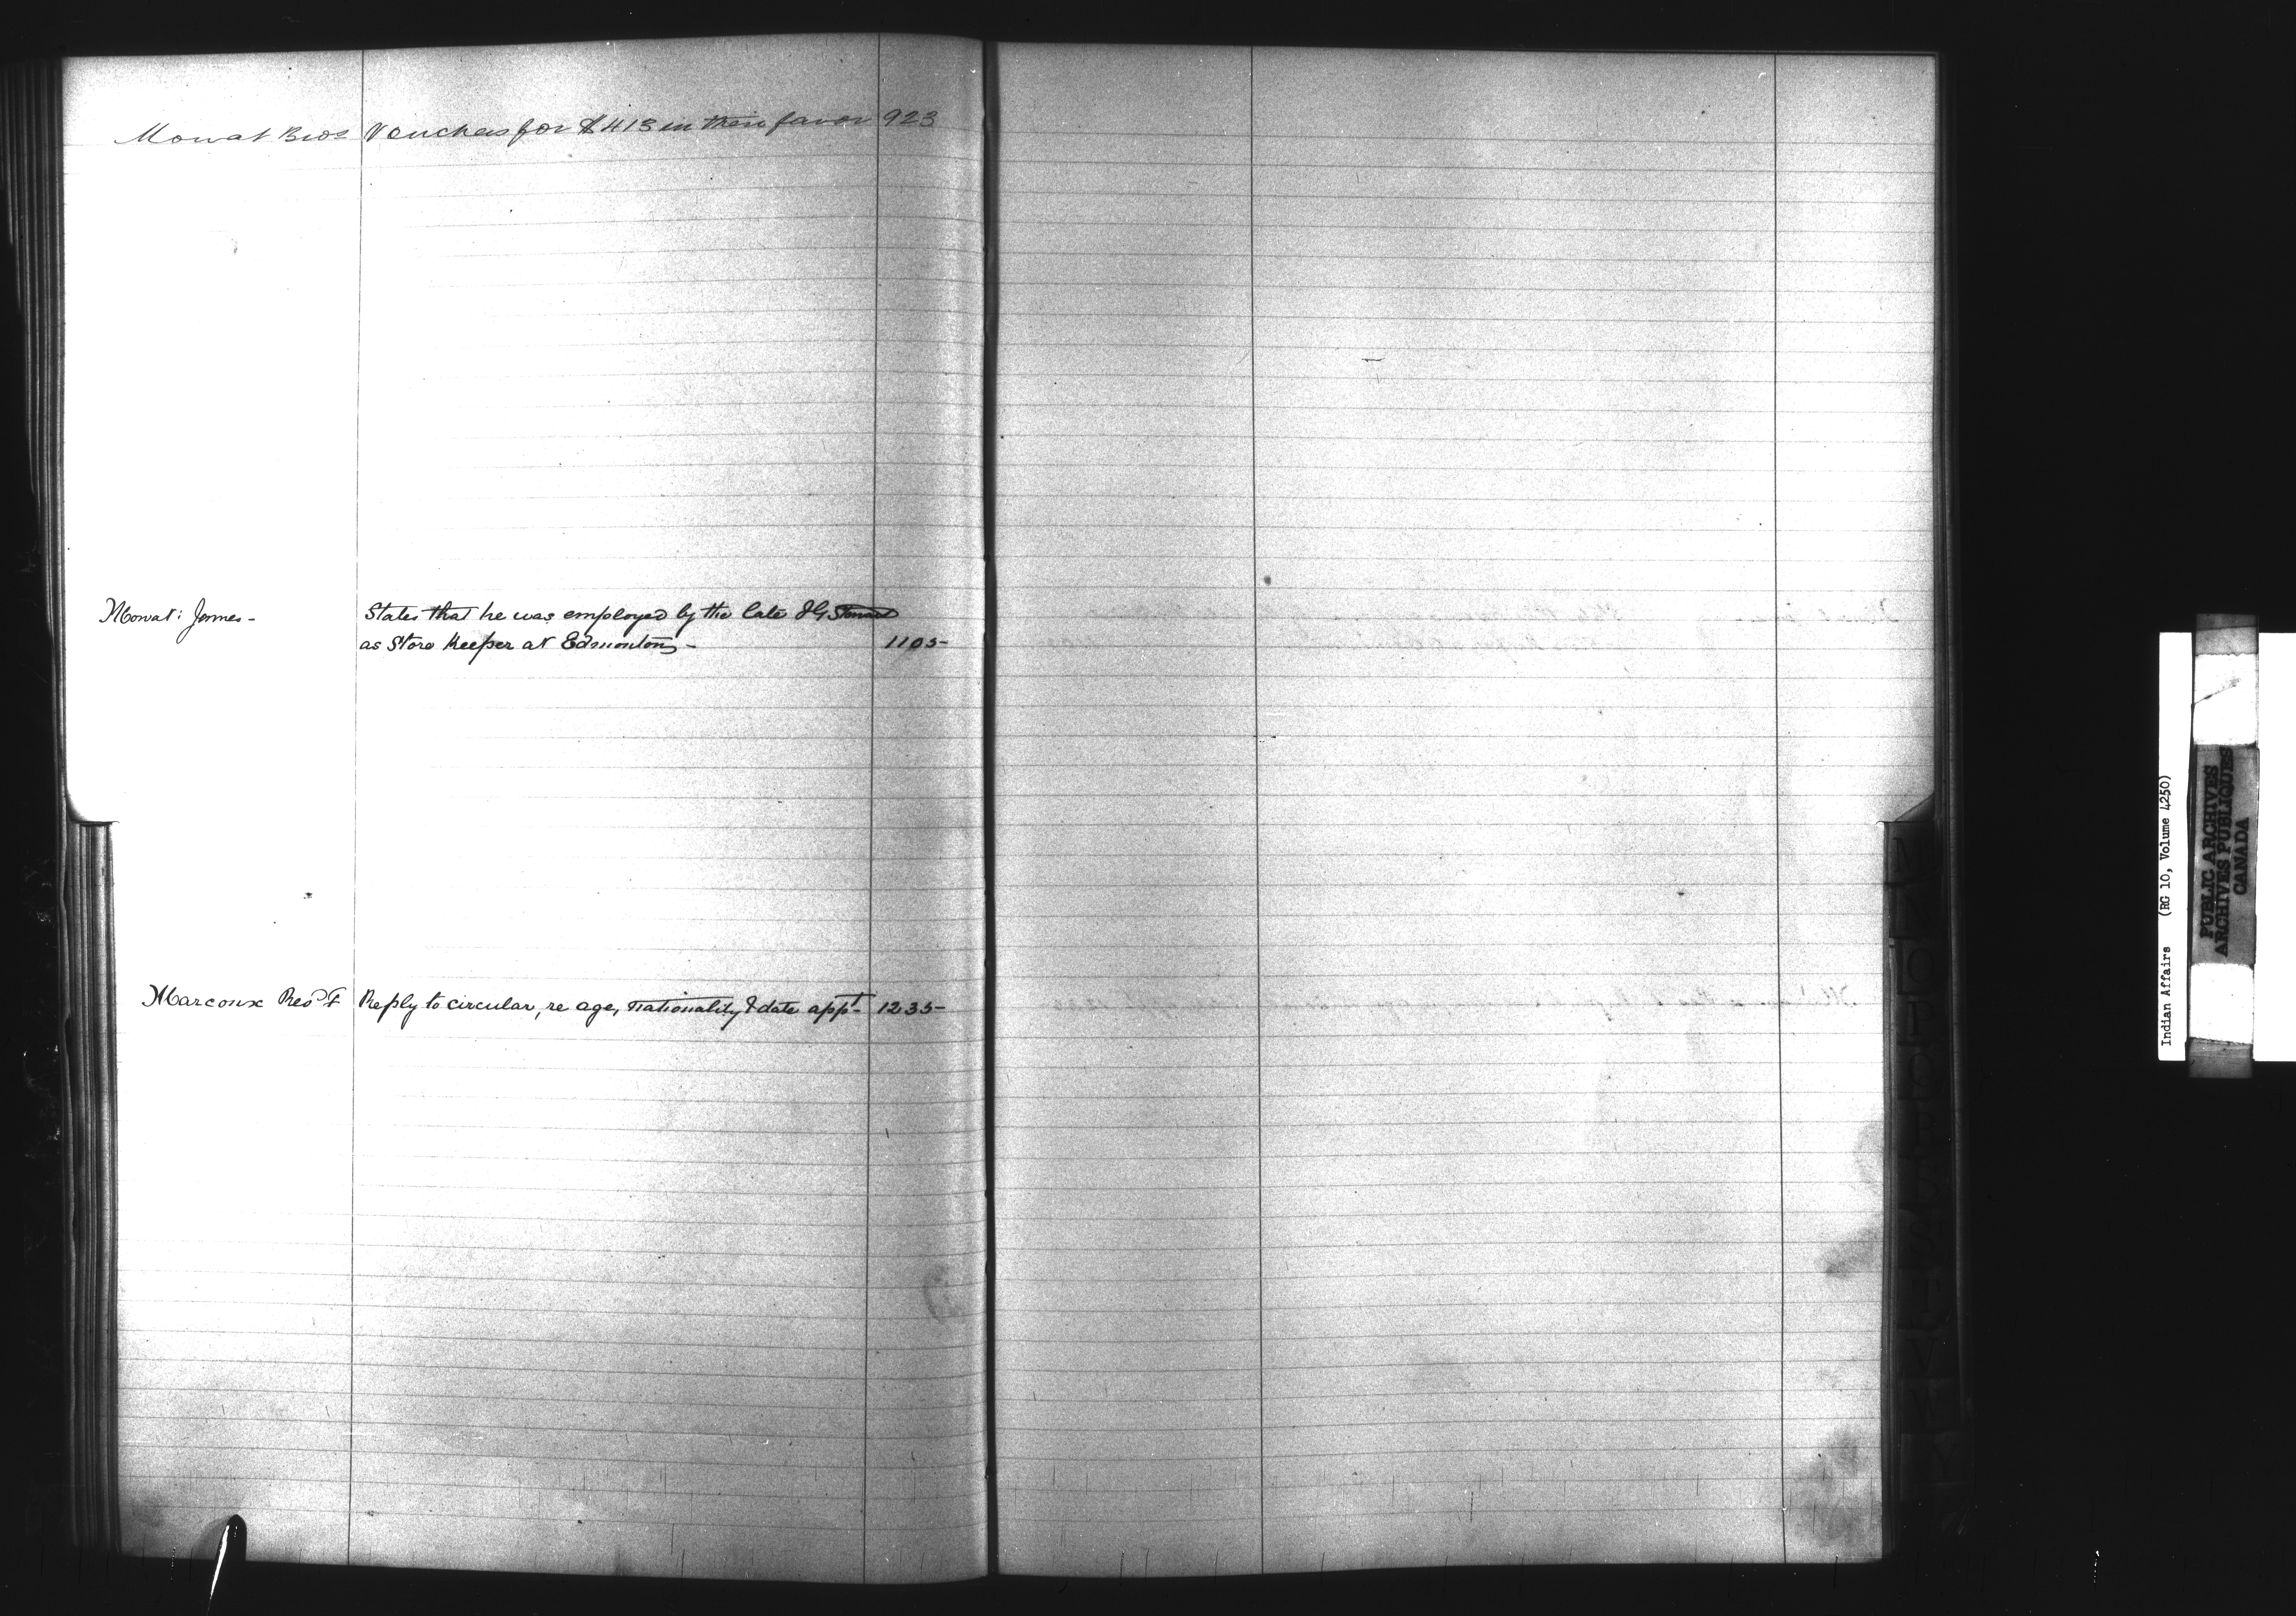 Mowat Bros Vouchers for $413 in their favor 923
Mowat: James - States that he was employed by the late J G Stewart
as Store Keeper at Edmonton - 1105-
Marcoux Revd F Reply to circular, re age, nationality & date appt- 1235-
M
N
O
P
Q
R
S
T
V
W
Y
Indian Affairs (RG 10, Volume 4250)
PUBLIC ARCHIVES
ARCHIVES PUBLIQUES
CANADA